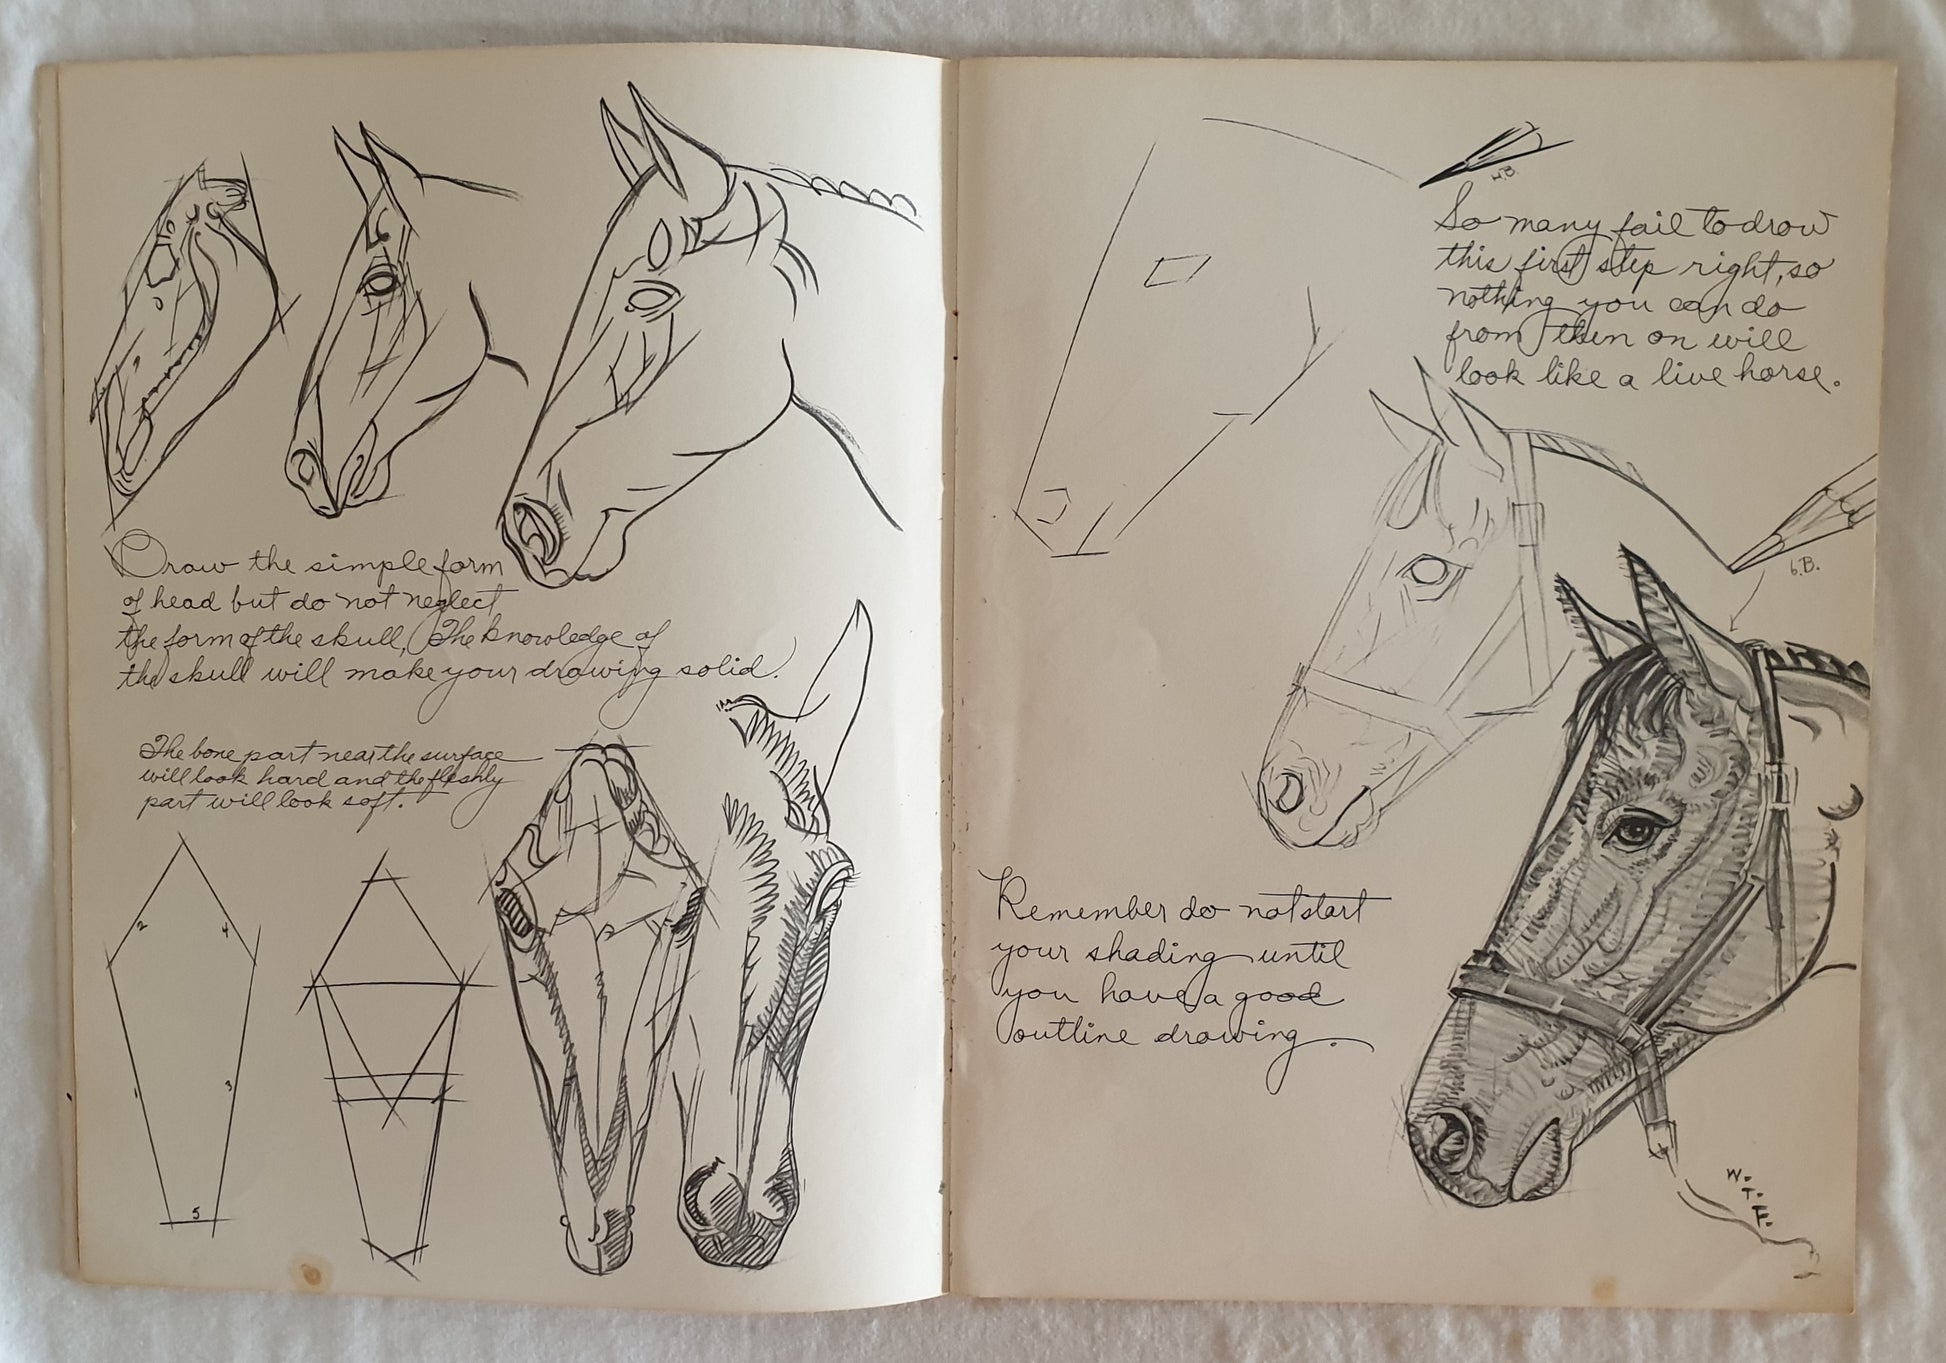 Draw the simple form
of head but do not neglect
the form of the skull, The knowledge of
the skull will make your drawing solid.
The bone part near the surface
will look hard and the fleshly
part will look soft.
2
4
1
3
5
H.B.
So many fail to draw
this first step right, so
nothing you can do
from then on will
look like a live horse.
6.B.
Remember do not start
your shading until
you have a good
outline drawing.
W.
T.
F.